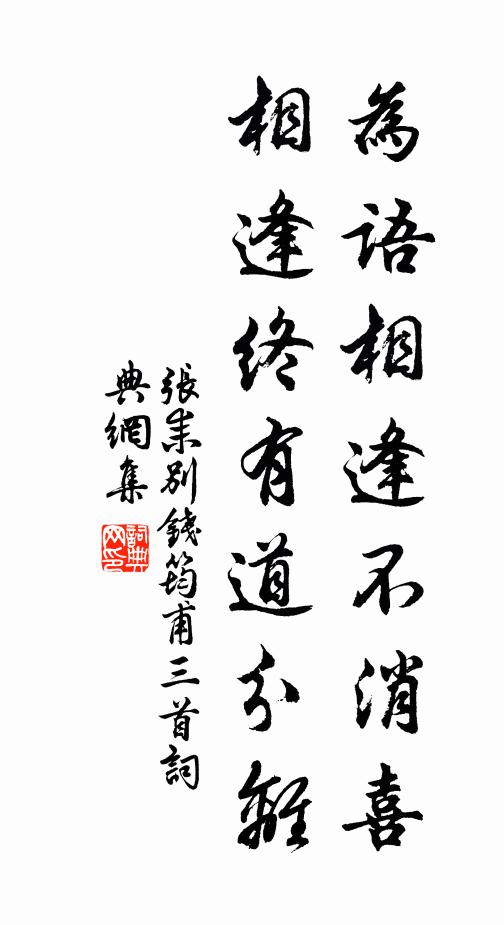 為語相逢不消喜
相逢終有道分離
張耒別錢筠甫三首詞
典網集
詞典網印